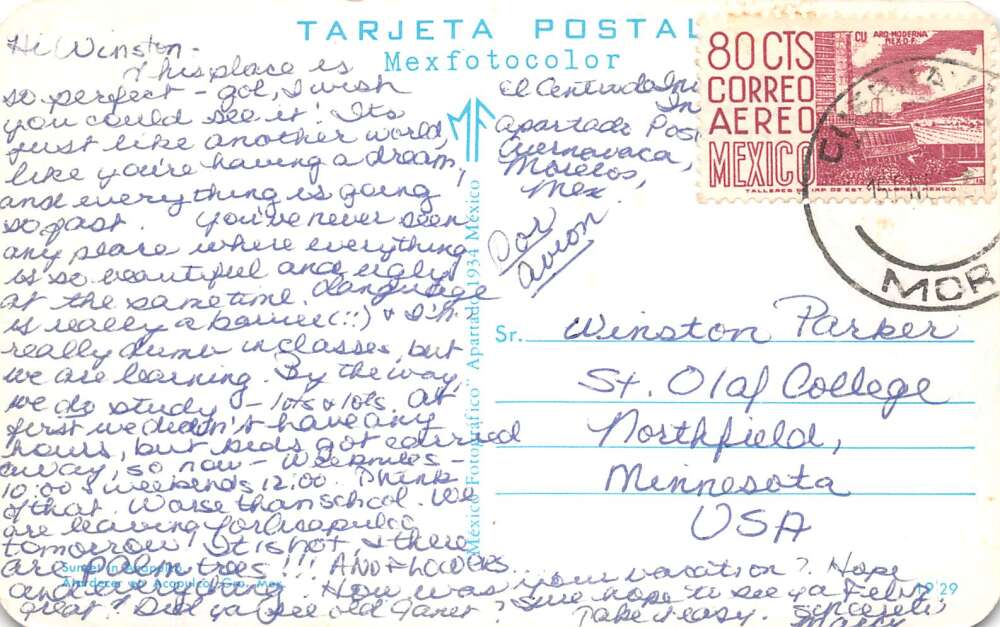 TARJETA POSTAL
Mexfotocolor
80 CTS
CORREO
AEREO
MEXICO
CU ARQ. MODERNA
MEX. D.F.
TALLERES IMP. DE EST. VALORES MEXICO
MOR
Hi Winston -
This place is
so perfect - gol, I wish
you could see it! Its
just like another world,
like you're having a dream,
and everything is going
so fast. You've never seen
any place where everything
is so beautiful and ugly
at the same time. Language
is really a barrier (::) & I'm
really dumb in classes, but
we are learning. By the way,
we do study - lots & lots. At
first we didn't have any
hours, but kids got carried
away, so now - Weeknites -
10:00 & weekends 12:00. Think
of that. Worse than school. We
are leaving for Acapulco
tomorrow! It is hot, & there
are palm trees!!! And flowers
and everything. How was your vacation? Hope
great? Did ya see old Janet? Sure hope to see ya Feb.
Take it easy. Sincerely,
El Centro de
Apartado Pos
Cuernavaca,
Morelos,
Mex
Por
Avion
Sr. Winston Parker
St. Olaf College
Northfield,
Minnesota
USA
MF
"Mexico Fotografico" Apartado 1934 Mexico
Sunset in Acapulco
Atardecer en Acapulco, Gro. Mex.
29